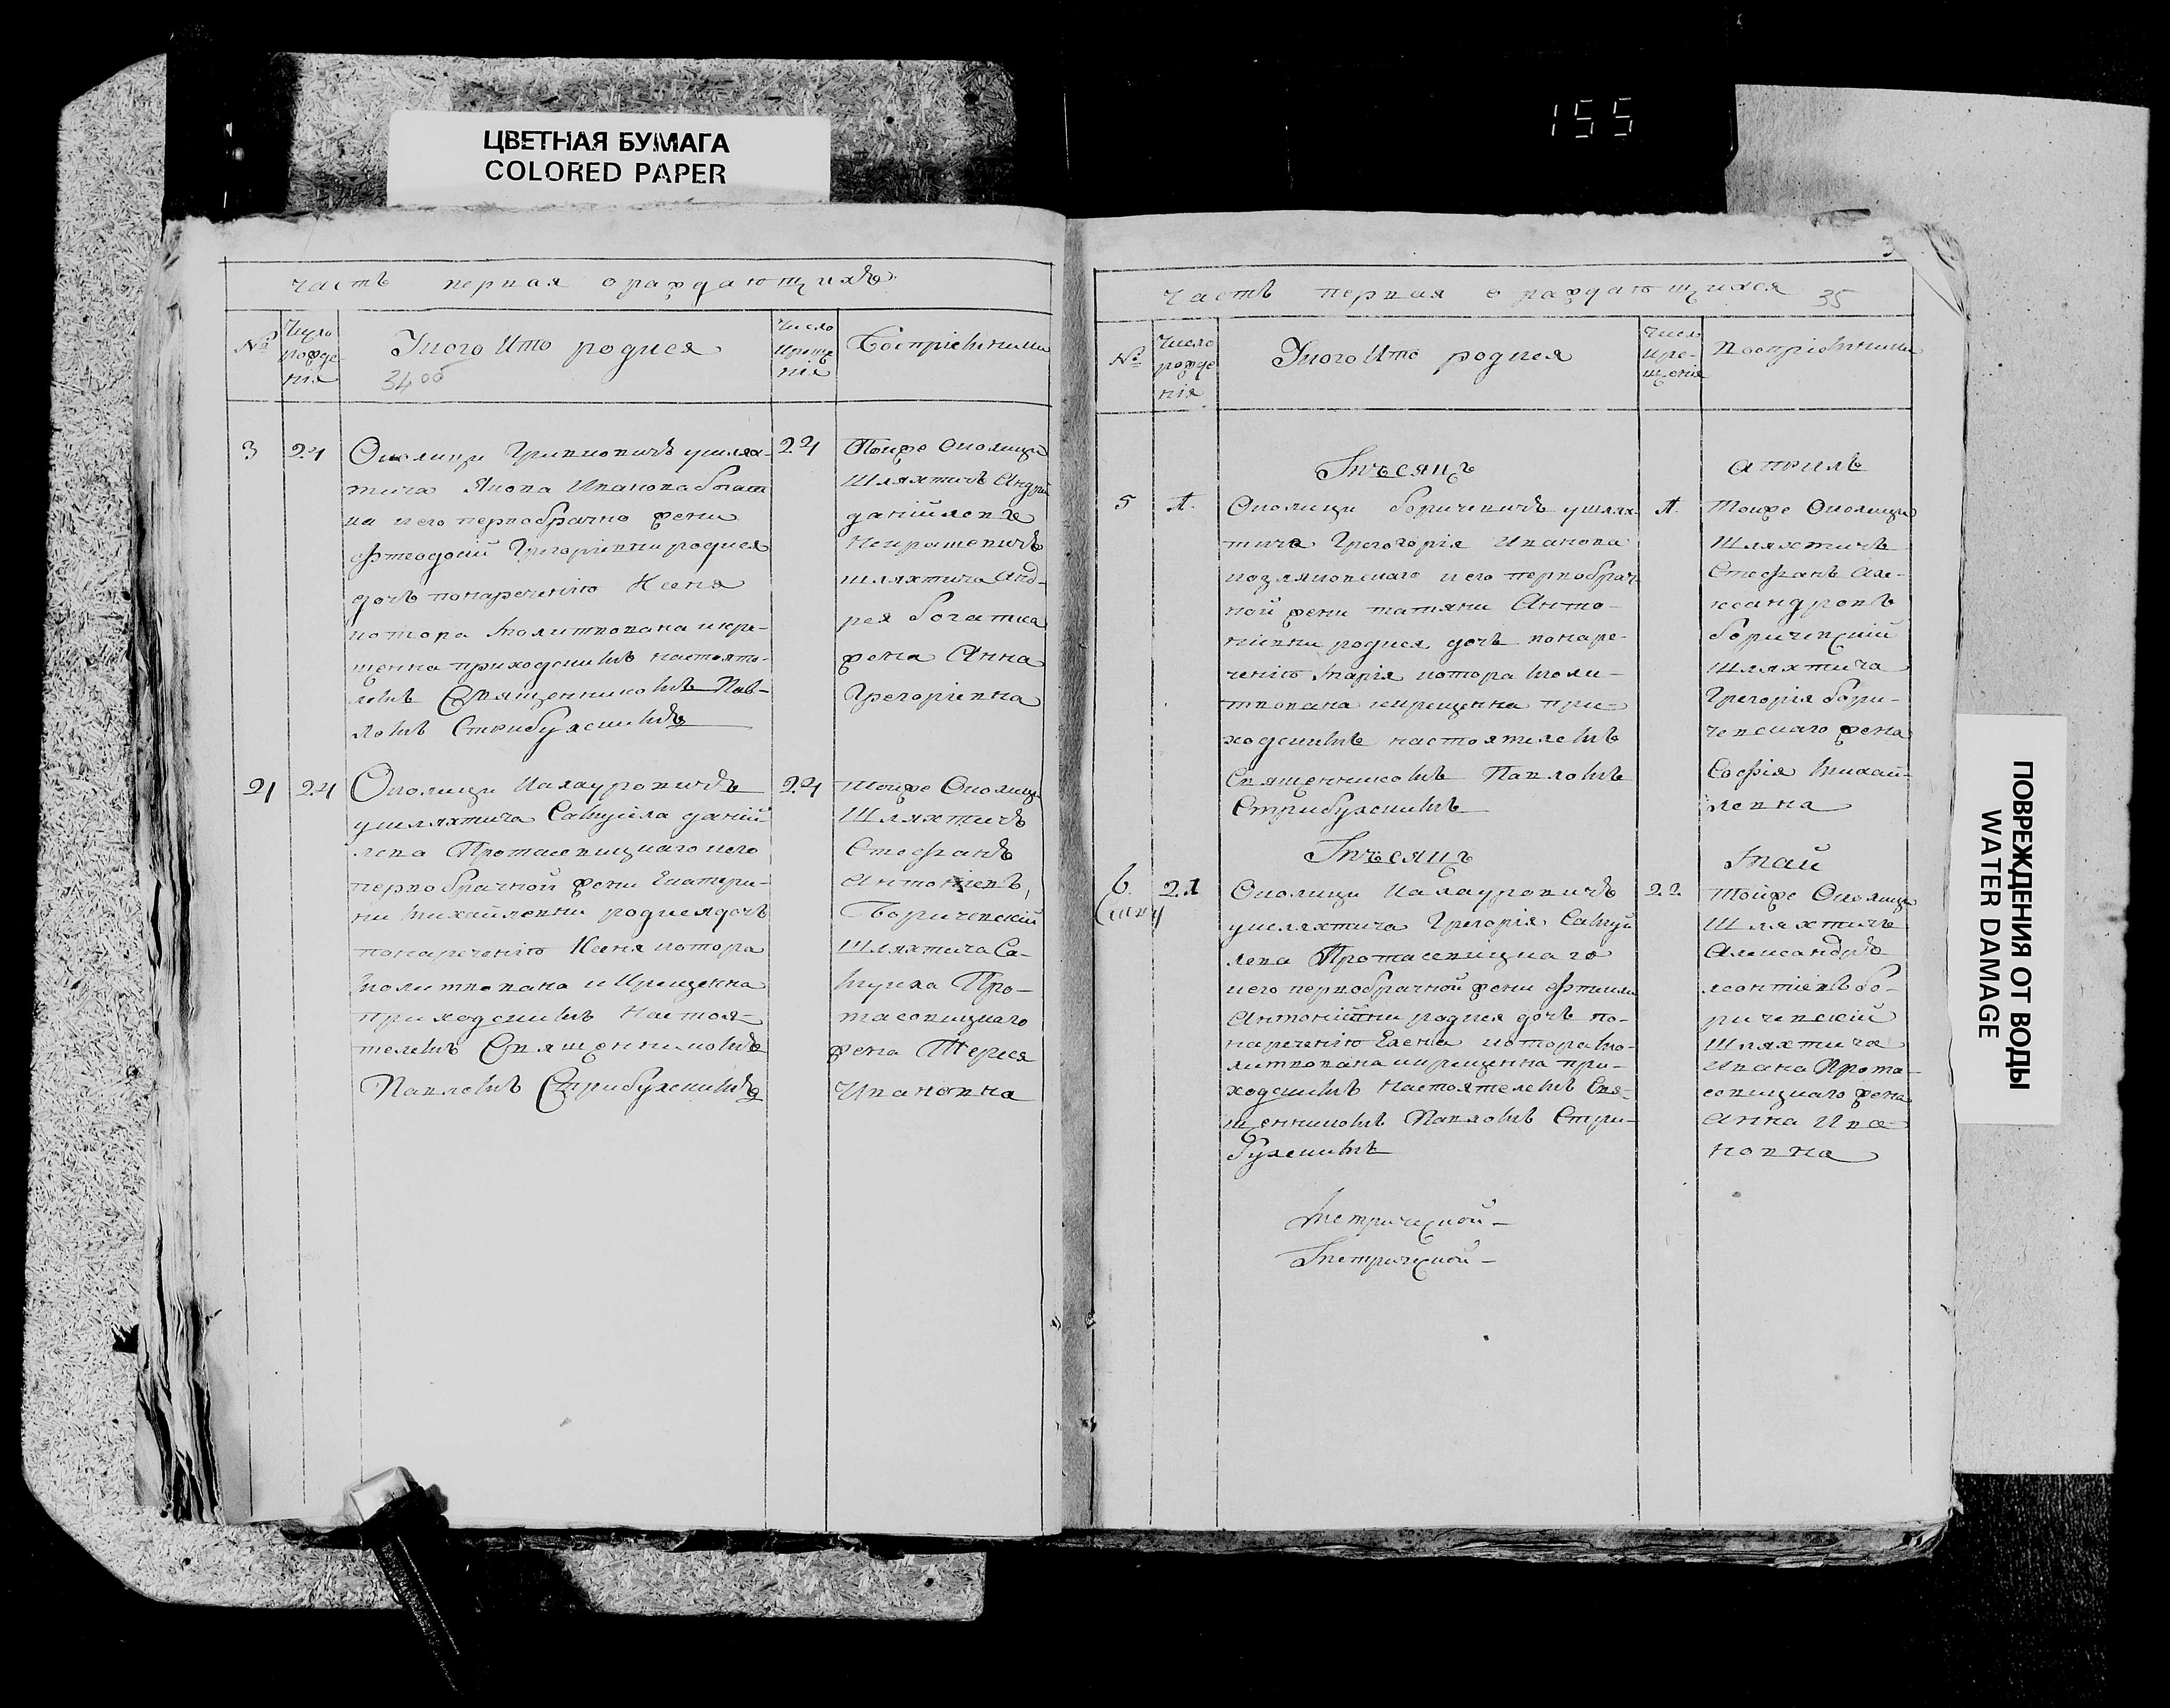 ЦВЕТНАЯ БУМАГА
COLORED PAPER
155
ПОВРЕЖДЕНИЯ ОТ ВОДЫ
WATER DAMAGE
часть первая о раждающихъ
№ Число рожде нія У кого кто родися Число креще нія Воспріемники
34об
3 24 Околицы Гривковичъ у шлях-
тича Якова Иванова Богат
ка и его первобрачно жены
Фтеодосій Григоріевны родися
дочъ понаречению Ксеня
котора молитвована и кре-
щенна приходскимъ настояте-
лемъ Священникомъ Пав-
ломъ Стрибульскимъ
24 Тойже Околицы
Шляхтичъ Андрей
данійлевъ
шляхтича Анд-
рея Богатка
жена Анна
Грегоріевна
4 24 Околицы Калауровичъ
у шляхтича Самуйла даній
лева Протасевицкаго и его
первобрачной жены Екатери-
ны Михайлевны родися дочъ
понаречению Ксеня котора
молитвована и Крещенна
приходскимъ Настоя-
телемъ Священникомъ
Павломъ Стрибульскимъ
24 Тойже Околицы
Шляхтичъ
Стефанъ
Антонiевъ
Боричевскій
Шляхтича Са-
муила Про-
тасовицкаго
жена
Ивановна
Часть первая о раждающихся
35
№ Число рожде нія У кого кто родися Число кре- щенія Воспріемники
Мѣсяцъ Априль
5 Околицы Боричевичъ у шлях-
тича Грегорія Иванова
Козляковскаго и его первобрач
ной жены татяны Анто-
ніевны родися дочъ понаре-
ченію Марія котора моли-
твована и крещенна при-
ходскимъ настоятелемъ
Священникомъ Павломъ
Стрибульскимъ
Тойже Околицы
Шляхтичъ
Стефанъ Але-
ксандровъ
Боричевскій
Шляхтича
Грегорія Бори-
чевскаго жена
Софія Михай-
левна
Мѣсяцъ Май
6 21 Околицы Калауровичъ
у шляхтича Грегорія Самуй
лева Протасевицкаго
и его первобрачной жены
Антонійни родися дочъ по-
нареченію Елена котора мо-
литвована и крещенна при-
ходскимъ Настоятелемъ Свя-
щенникомъ Павломъ Стри-
бульскимъ
22 Тойже Околицы
Шляхтичъ
Александръ
леонтіевъ Бо-
ричевскій
Шляхтича
Ивана Прота-
совицкаго жена
Анна Ива-
новна
Метрической-
Метрической-